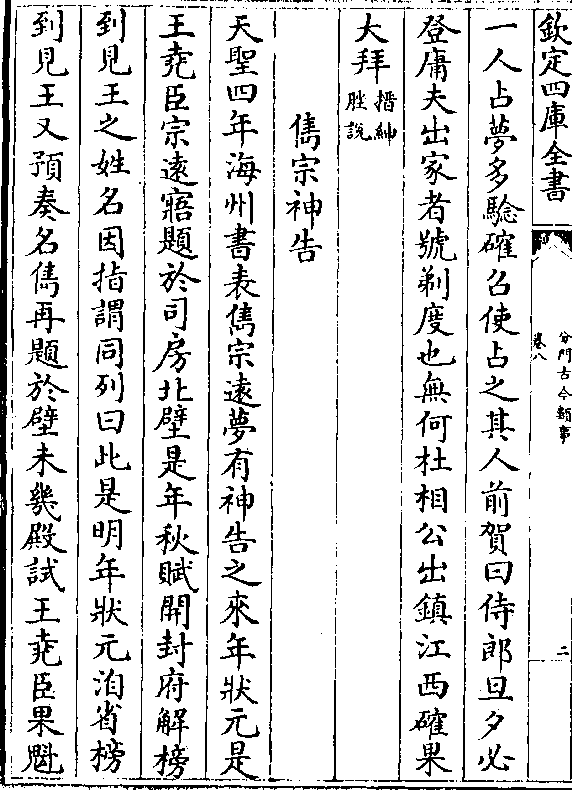 欽定四庫全書
分門古今類事
卷八
二
一人占夢多驗確召使占之其人前賀曰侍郎旦夕必
登庸夫出家者號剃度也無何杜相公出鎮江西確果
大拜搢紳
脞説
雋宗神告
天聖四年海州書表雋宗遠夢有神告之來年狀元是
王堯臣宗遠寤題於司房北壁是年秋賦開封府解榜
到見王之姓名因指謂同列曰此是明年狀元洎省榜
到見王又預奏名雋再題於壁未幾殿試王堯臣果魁